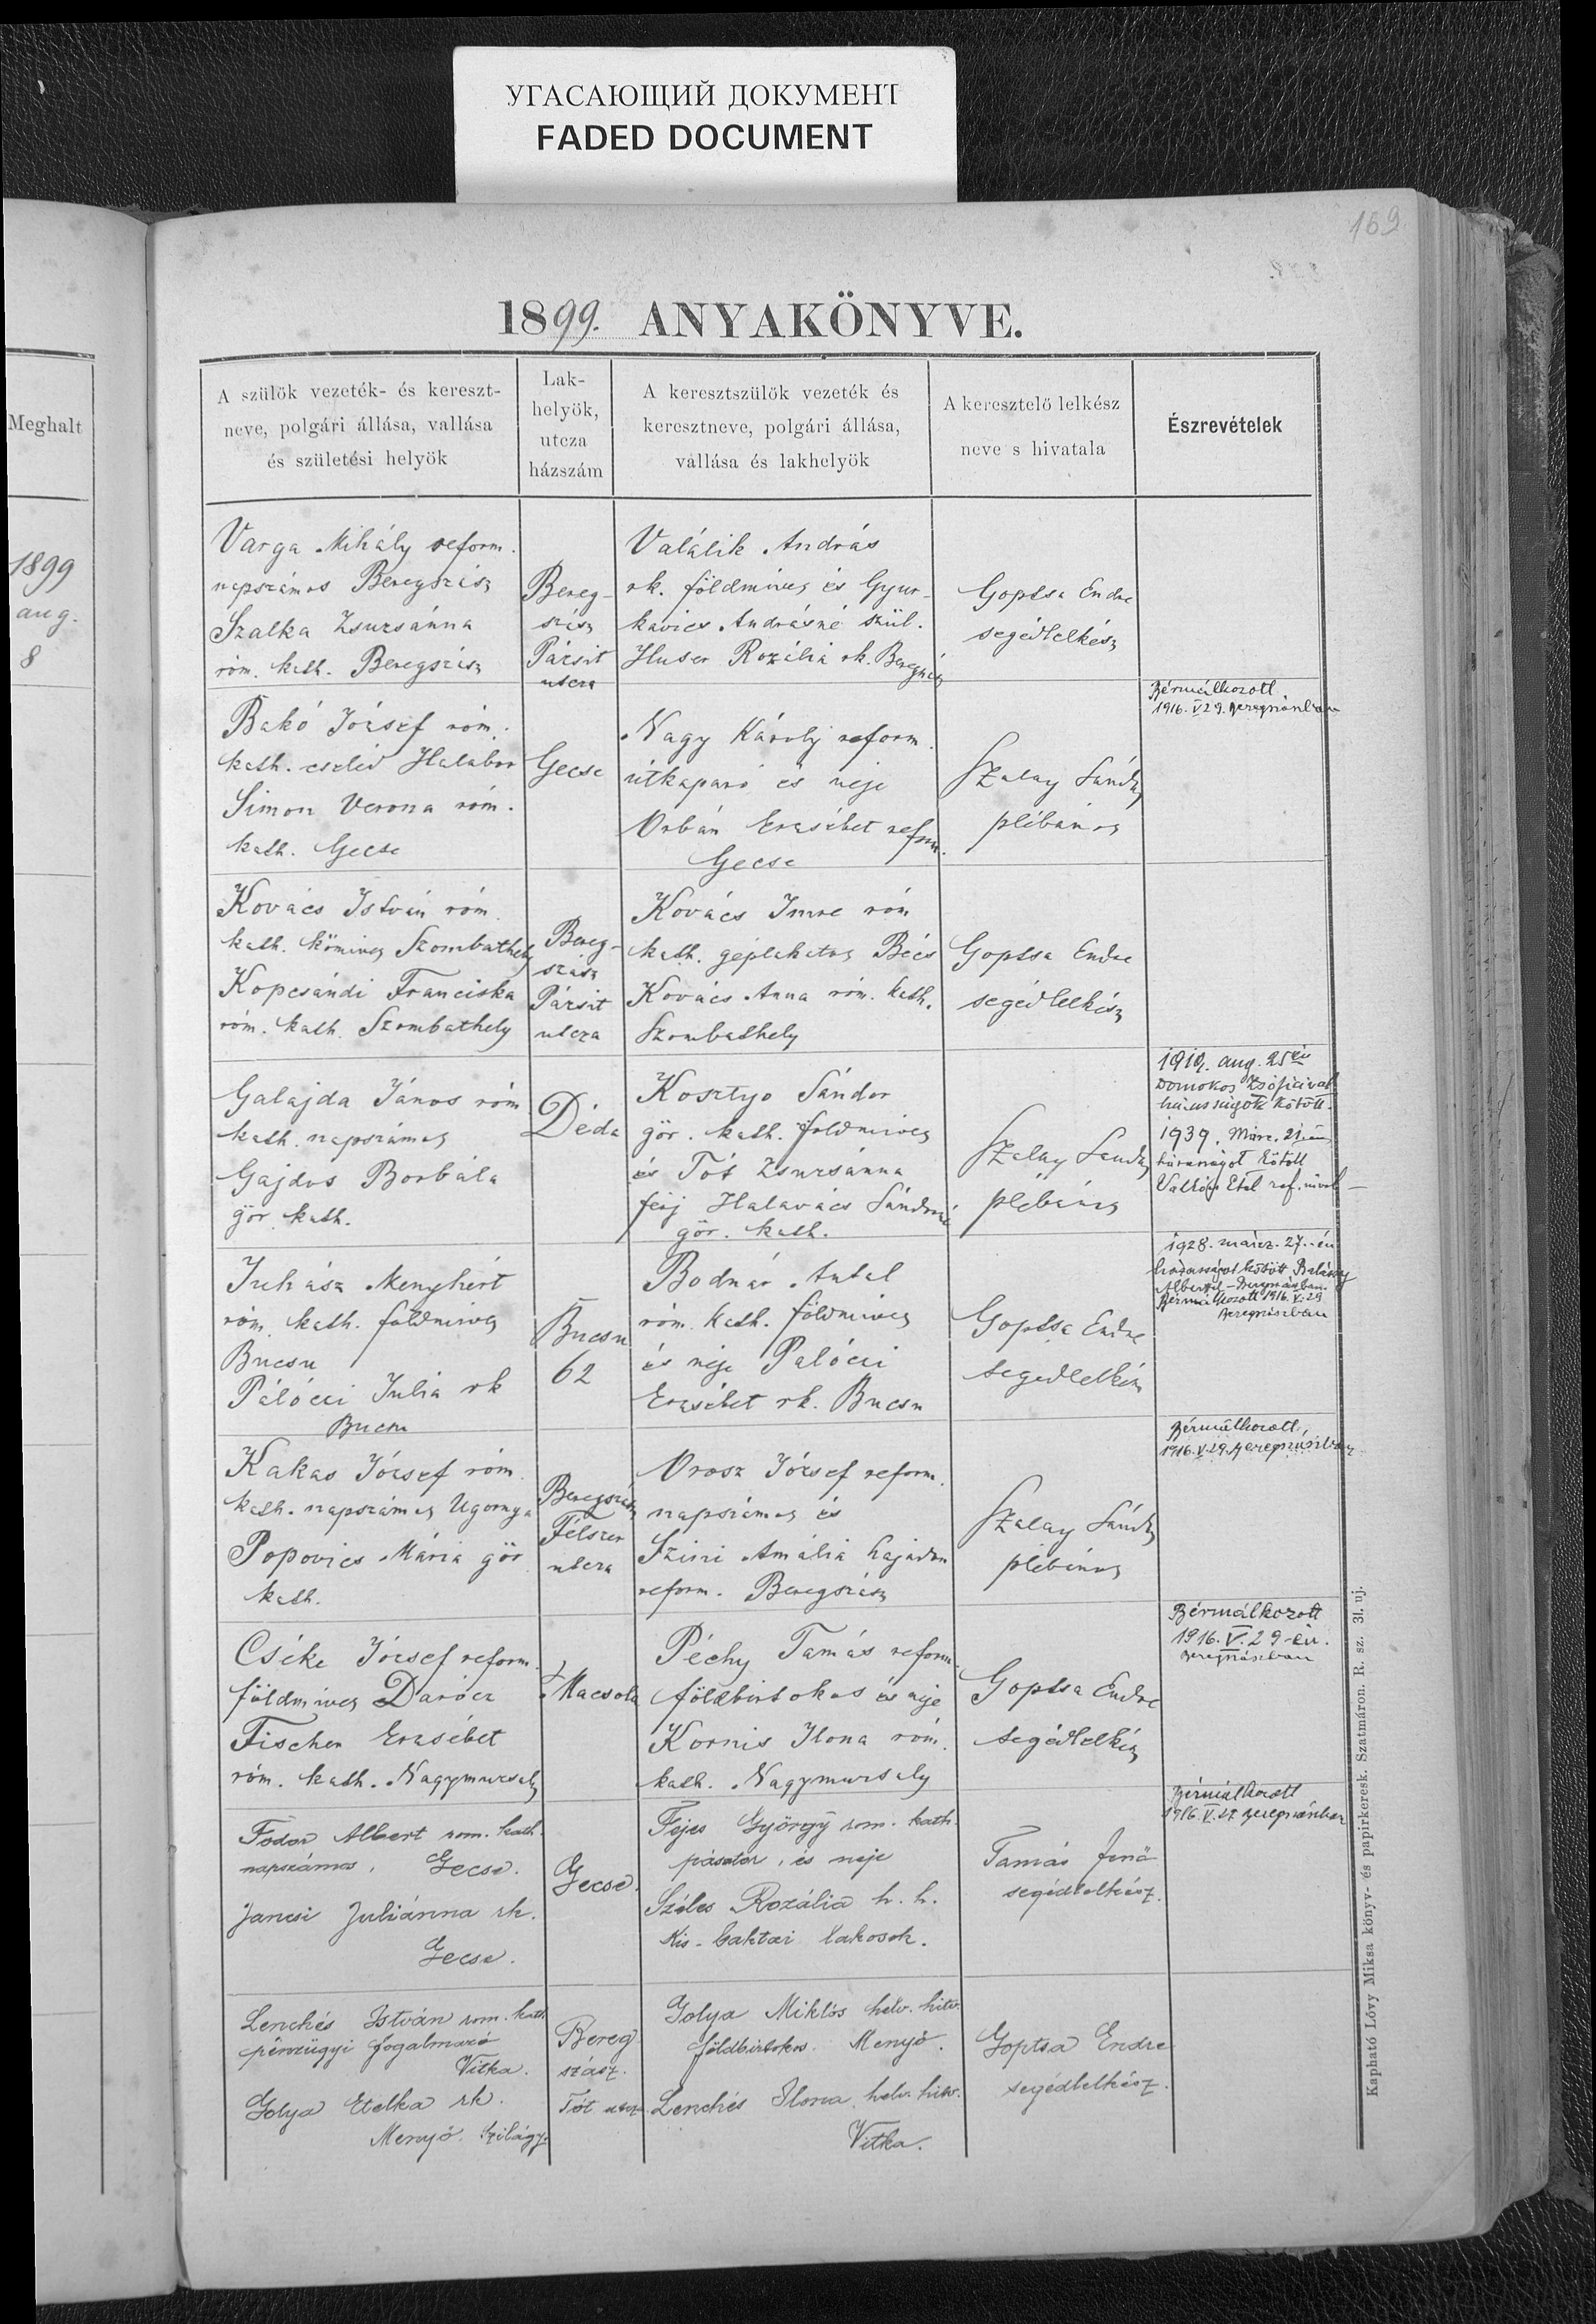 УГАСАЮЩИЙ ДОКУМЕНТ
FADED DOCUMENT
169
1899. ANYAKÖNYVE.
Meghalt
1899
aug.
8
A szülők vezeték- és kereszt-
neve, polgári állása, vallása
és születési helyök
Lak-
helyök,
utcza
házszám
A keresztszülők vezeték és
keresztneve, polgári állása,
vallása és lakhelyök
A keresztelő lelkész
neve s hivatala
Észrevételek
Varga Mihály reform.
napszámos Beregszász
Szalka Zsuzsánna
róm. kath. Beregszász
Bereg-
szász
Pázsit
utcza
Valálik András
rk. földmíves és Gyur-
kavics Andrásné szül.
Huser Rozália rk. Beregszász
Goptsa Endre
segédlelkész
Bakó József róm.
kath. cseléd Halabor
Simon Verona róm.
kath. Gecse
Gecse
Nagy Károly reform.
útkaparó és neje
Orbán Erzsébet reform.
Gecse
Szalay Sándor
plébános
Bérmálkozott
1916. V 29. Beregszászban
Kovács István róm.
kath. kőmíves Szombathely
Kopcsándi Franciska
róm. kath. Szombathely
Bereg-
szász
Pázsit
utcza
Kovács Imre róm
kath. géplakatos Bécs
Kovács Anna róm. kath.
Szombathely
Goptsa Endre
segédlelkész
Galajda János róm
kath. napszámos
Gajdos Borbála
gör. kath.
Déda
Kosztyo Sándor
gör. kath. földmíves
és Tót Zsuzsánna
férj Halavács Sándorné
gör. kath.
Szalay Sándor
plébános
1919. aug. 25 én
Domokos Zsófiával
házasságot kötött.
1939. Márc. 21-én
házasságot kötött
Etel ref. nővel
Juhász Menyhért
róm. kath. földmíves
Bucsu
Pálóczi Julia rk
Bucsu
Bucsu
62
Bodnár Antal
róm. kath. földmíves
és neje Palóczi
Erzsébet rk. Bucsu
Goptsa Endre
segédlelkész
1928. márcz. 27-én
házasságot kötött Balássy
Alberttel - Beregszászban.
Bérmálkozott 1916. V. 29
Beregszászban
Kakas József róm.
kath. napszámos Ugornya
Popovics Mária gör
kath.
Beregszász
Félszer
utcza
Orosz József reform.
napszámos és
Szini Amália hajadon
reform. Beregszász
Szalay Sándor
plébános
Bérmálkozott
1916. V. 29. Beregszászban
Cséke József reform.
földmíves Darócz
Fischer Erzsébet
róm. kath. Nagymuzsaly
Macsola
Péchy Tamás reform
földbirtokos és neje
Kornis Ilona róm.
kath. Nagymuzsaly
Goptsa Endre
segédlelkész
Bérmálkozott
1916. V. 29-én.
Beregszászban
Fodor Albert rom. kath.
napszámos, Gecse.
Jancsi Juliánna rk.
Gecse.
Gecse.
Fejes György rom. kath.
pásztor, és neje
Széles Rozália h. h.
Kis-baktai lakosok.
Tamás Jenő
segédlelkész.
Bérmálkozott
1916. V. 29 Beregszászban
Lenchés István rom. kath
pénzügyi fogalmazó
Vitka.
Golya Etelka rk.
Menyő. Szilágy.
Bereg
szász.
Tót utcza
Golya Miklós helv. hitv.
földbirtokos. Menyő.
Lenchés Ilona helv. hitv.
Vitka.
Goptsa Endre
segédlelkész.
Kapható Lővy Miksa könyv- és papirkeresk. Szatmáron. R. sz. 31. uj.